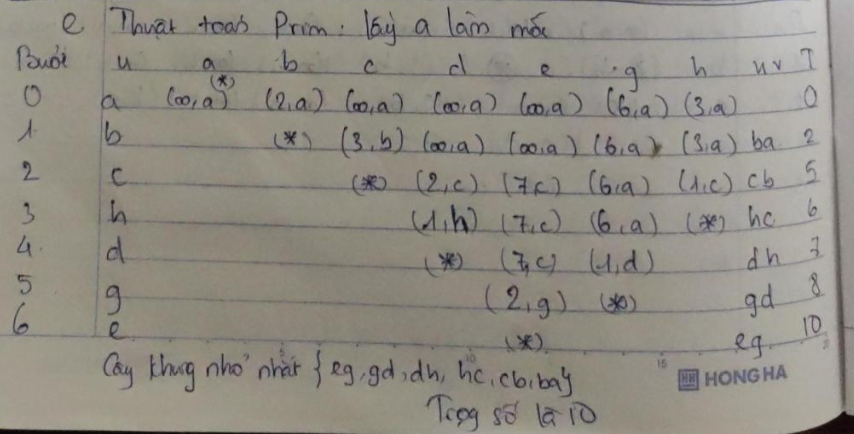 e Thuật toán Prim: lấy a làm mốc
Bước u a b c d e g h uv T
0 a (∞,a)(*) (2,a) (∞,a) (∞,a) (∞,a) (6,a) (3,a) 0
1 b (*) (3,b) (∞,a) (∞,a) (6,a) (3,a) ba 2
2 c (*) (2,c) (7,c) (6,a) (1,c) cb 5
3 h (1,h) (7,c) (6,a) (*) hc 6
4 d (*) (7,c) (1,d) dh 7
5 g (2,g) (*) gd 8
6 e (*) eg 10
Cây khung nhỏ nhất {eg,gd,dh,hc,cb,ba}
HONG HA
Trọng số là 10